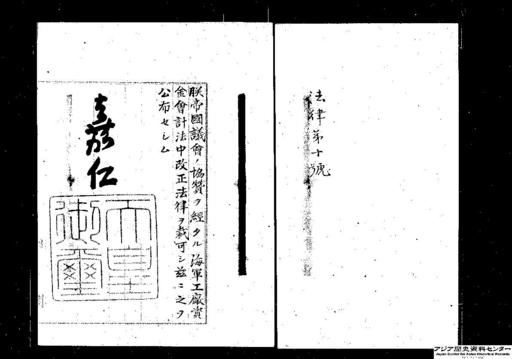 法律第十號
朕帝國議會ノ協贊ヲ經タル海軍工廠資
金會計法中改正法律ヲ裁可シ茲ニ之ヲ
公布セシム
嘉仁
天皇
御璽
アジア歴史資料センター
Japan Center for Asian Historical Records